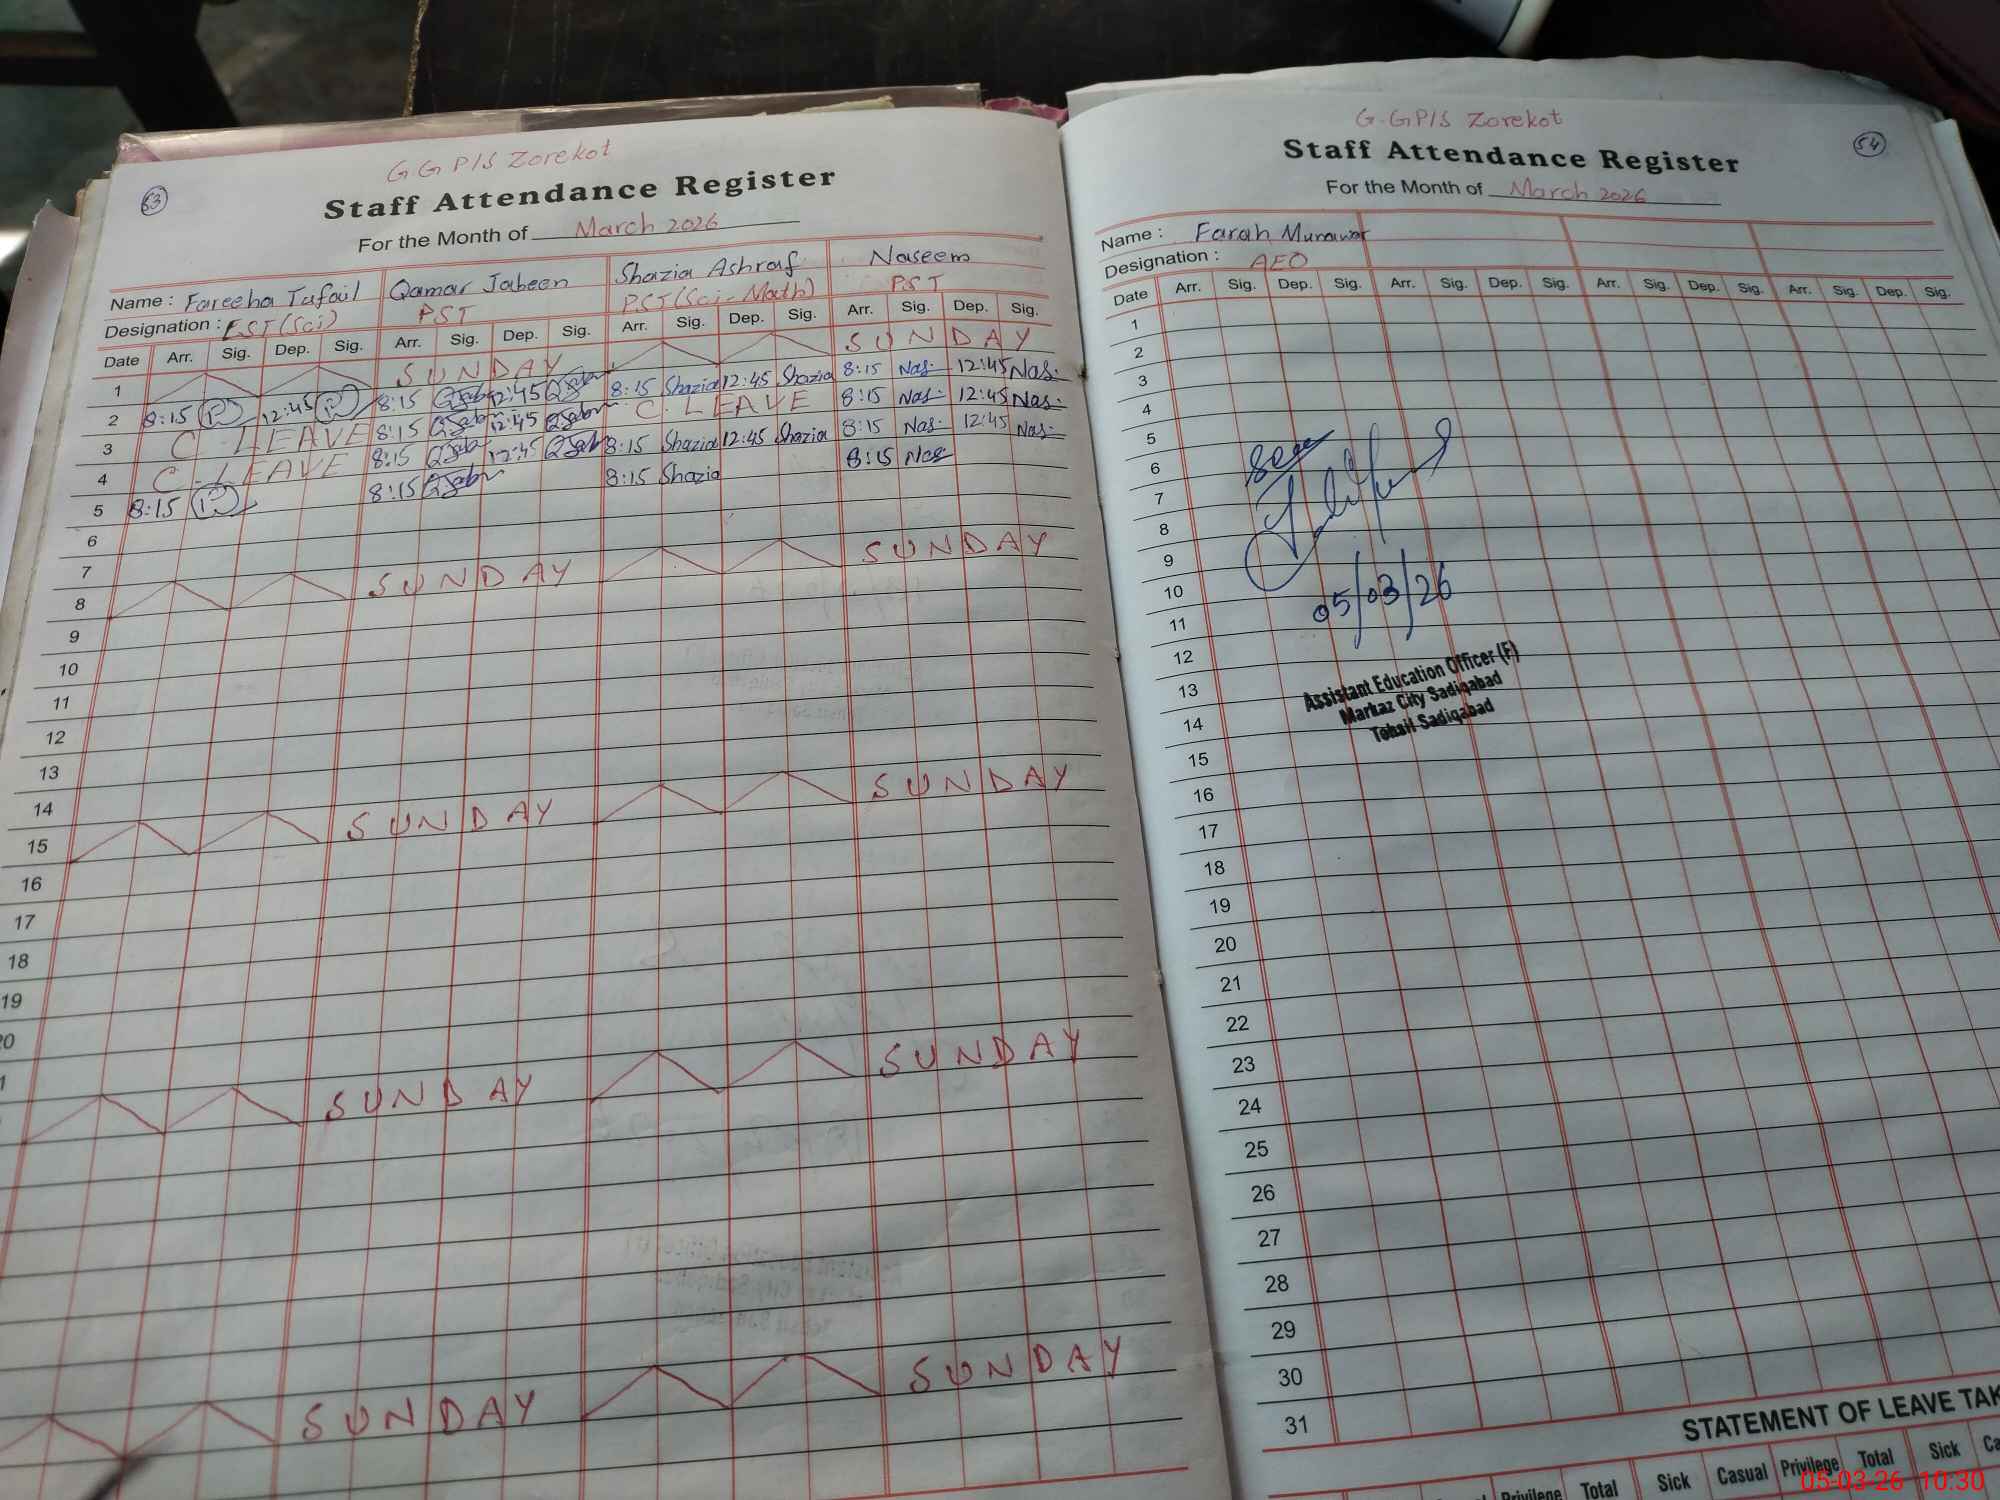 53
G G P/S Zorekot
Staff Attendance Register
For the Month of March 2026
Name : Fareeha Tufail Qamar Jabeen Shazia Ashraf Naseem
Designation : EST (Sci) PST PST (Sci-Math) PST
Date Arr. Sig. Dep. Sig. Arr. Sig. Dep. Sig. Arr. Sig. Dep. Sig. Arr. Sig. Dep. Sig.
1 SUNDAY SUNDAY
2 8:15 12:45 8:15 12:45 8:15 Shazia 12:45 Shazia 8:15 Nas. 12:45 Nas.
3 C. LEAVE 8:15 12:45 C. LEAVE 8:15 Nas. 12:45 Nas.
4 C. LEAVE 8:15 12:45 8:15 Shazia 12:45 Shazia 8:15 Nas. 12:45 Nas.
5 8:15 8:15 8:15 Shazia 8:15 Nas.
6
7
8 SUNDAY SUNDAY
9
10
11
12
13
14
15 SUNDAY SUNDAY
16
17
18
19
20
SUNDAY SUNDAY
SUNDAY SUNDAY
54
G.GP/S Zorekot
Staff Attendance Register
For the Month of March 2026
Name : Farah Munawar
Designation : AEO
Date Arr. Sig. Dep. Sig. Arr. Sig. Dep. Sig. Arr. Sig. Dep. Sig. Arr. Sig. Dep. Sig.
1
2
3
4
5
6
7
8
9
10
05/03/26
11
12
Assistant Education Officer (F)
13
Markaz City Sadiqabad
14
Tehsil Sadiqabad
15
16
17
18
19
20
21
22
23
24
25
26
27
28
29
30
31
STATEMENT OF LEAVE TAK
Privilege Total Sick Casual Privilege Total Sick Ca
05-03-26 10:30